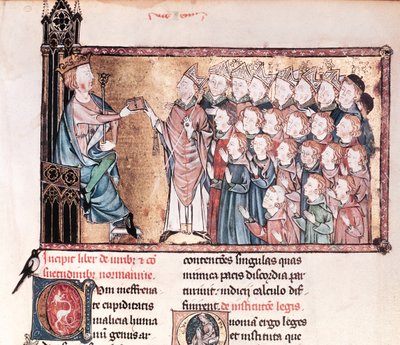 Incipit liber de iuribꝫ ⁊ cō
suetudinibꝫ normannie.
Cum ineffrena
te cupiditatis
malicia huma
nū genus ar
contentōes singulas quas
inimica pacis discordia par
turiunt. iudicii calculo dif
finirent. de institucōe legis.
Quoniā ergo leges
et instituta que